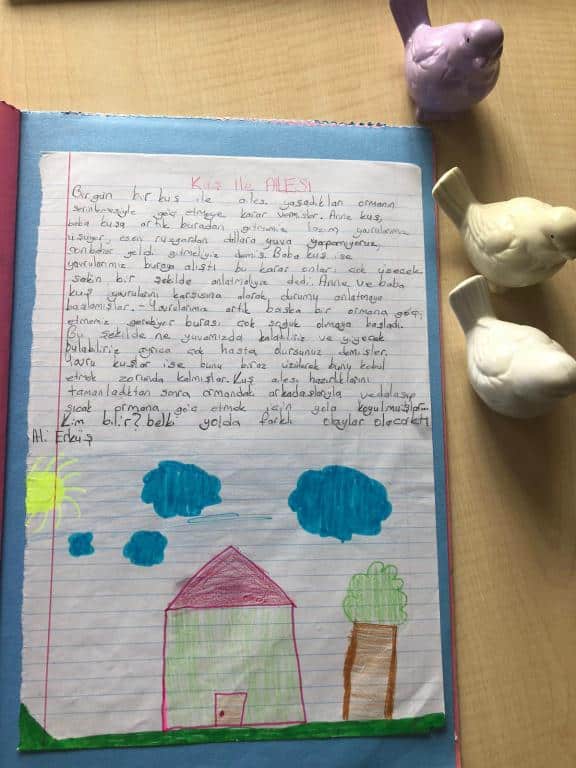 Kuş ile AİLESİ
Bir gün bir kuş ile ailesi yaşadıkları ormanın
serinlemesiyle göç etmeye karar vermişler. Anne kuş,
baba kuşa artık buradan gitmemiz lazım yavrularımız
üşüyor, esen rüzgardan dallara yuva yapamıyoruz,
sonbahar geldi gitmeliyiz demiş. Baba kuş ise
yavrularımız buraya alıştı bu kararı onları çok
sakin bir şekilde anlatmalıyız dedi. Anne ve baba
kuş yavrularını karşısına alarak durumu anlatmaya
başlamışlar. Yavrularımız artık başka bir ormana göç
etmemiz gerekiyor burası çok soğuk olmaya başladı.
Bu şekilde ne yuvamızda kalabiliriz ve yiyecek
bulabiliriz ayrıca çok hasta olursunuz demişler.
Yavru kuşlar ise bunu biraz üzülerek bunu kabul
etmek zorunda kalmışlar. Kuş ailesi hazırlıklarını
tamamladıktan sonra ormandaki arkadaşlarıyla vedalaşıp
sıcak ormana göç etmek için yola koyulmuşlar.
Kim bilir? belki yolda farklı olaylar olacaktı
Ali Erkuş